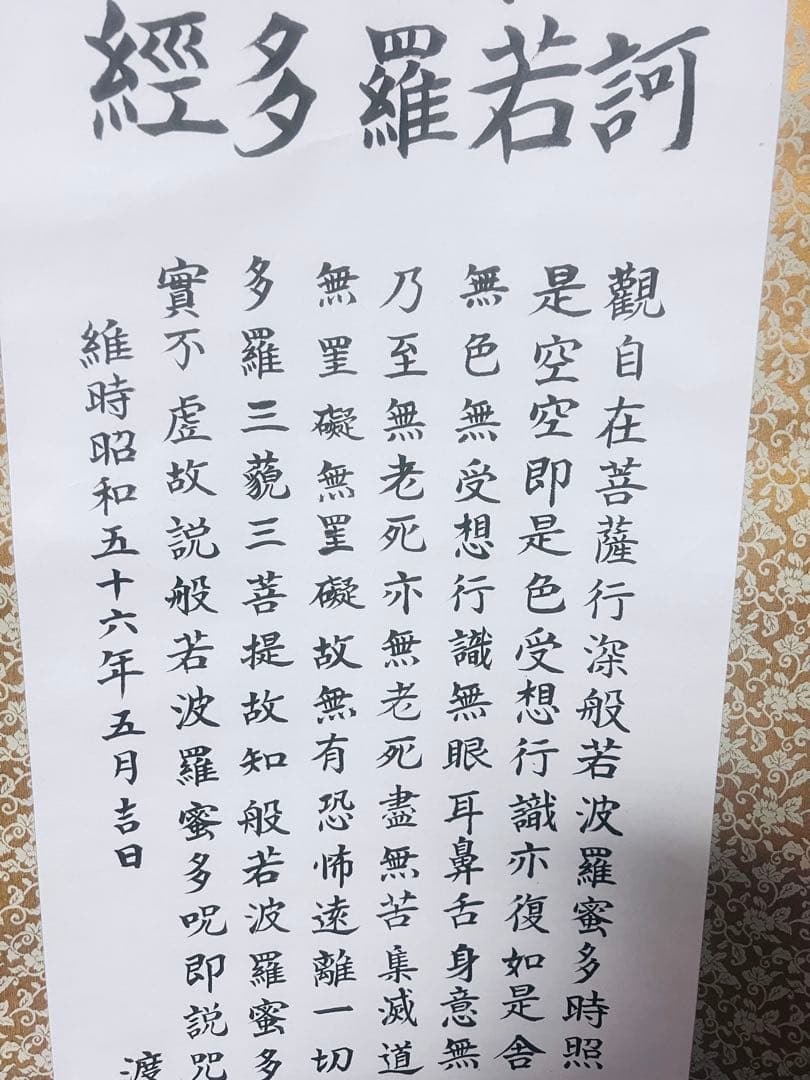 訶若羅多經
觀自在菩薩行深般若波羅蜜多時照
是空空即是色受想行識亦復如是舎
無色無受想行識無眼耳鼻舌身意無
乃至無老死亦無老死盡無苦集滅道
無罣礙無罣礙故無有恐怖遠離一切
多羅三藐三菩提故知般若波羅蜜多
實不虛故説般若波羅蜜多呪即説呪
維時昭和五十六年五月吉日
渡